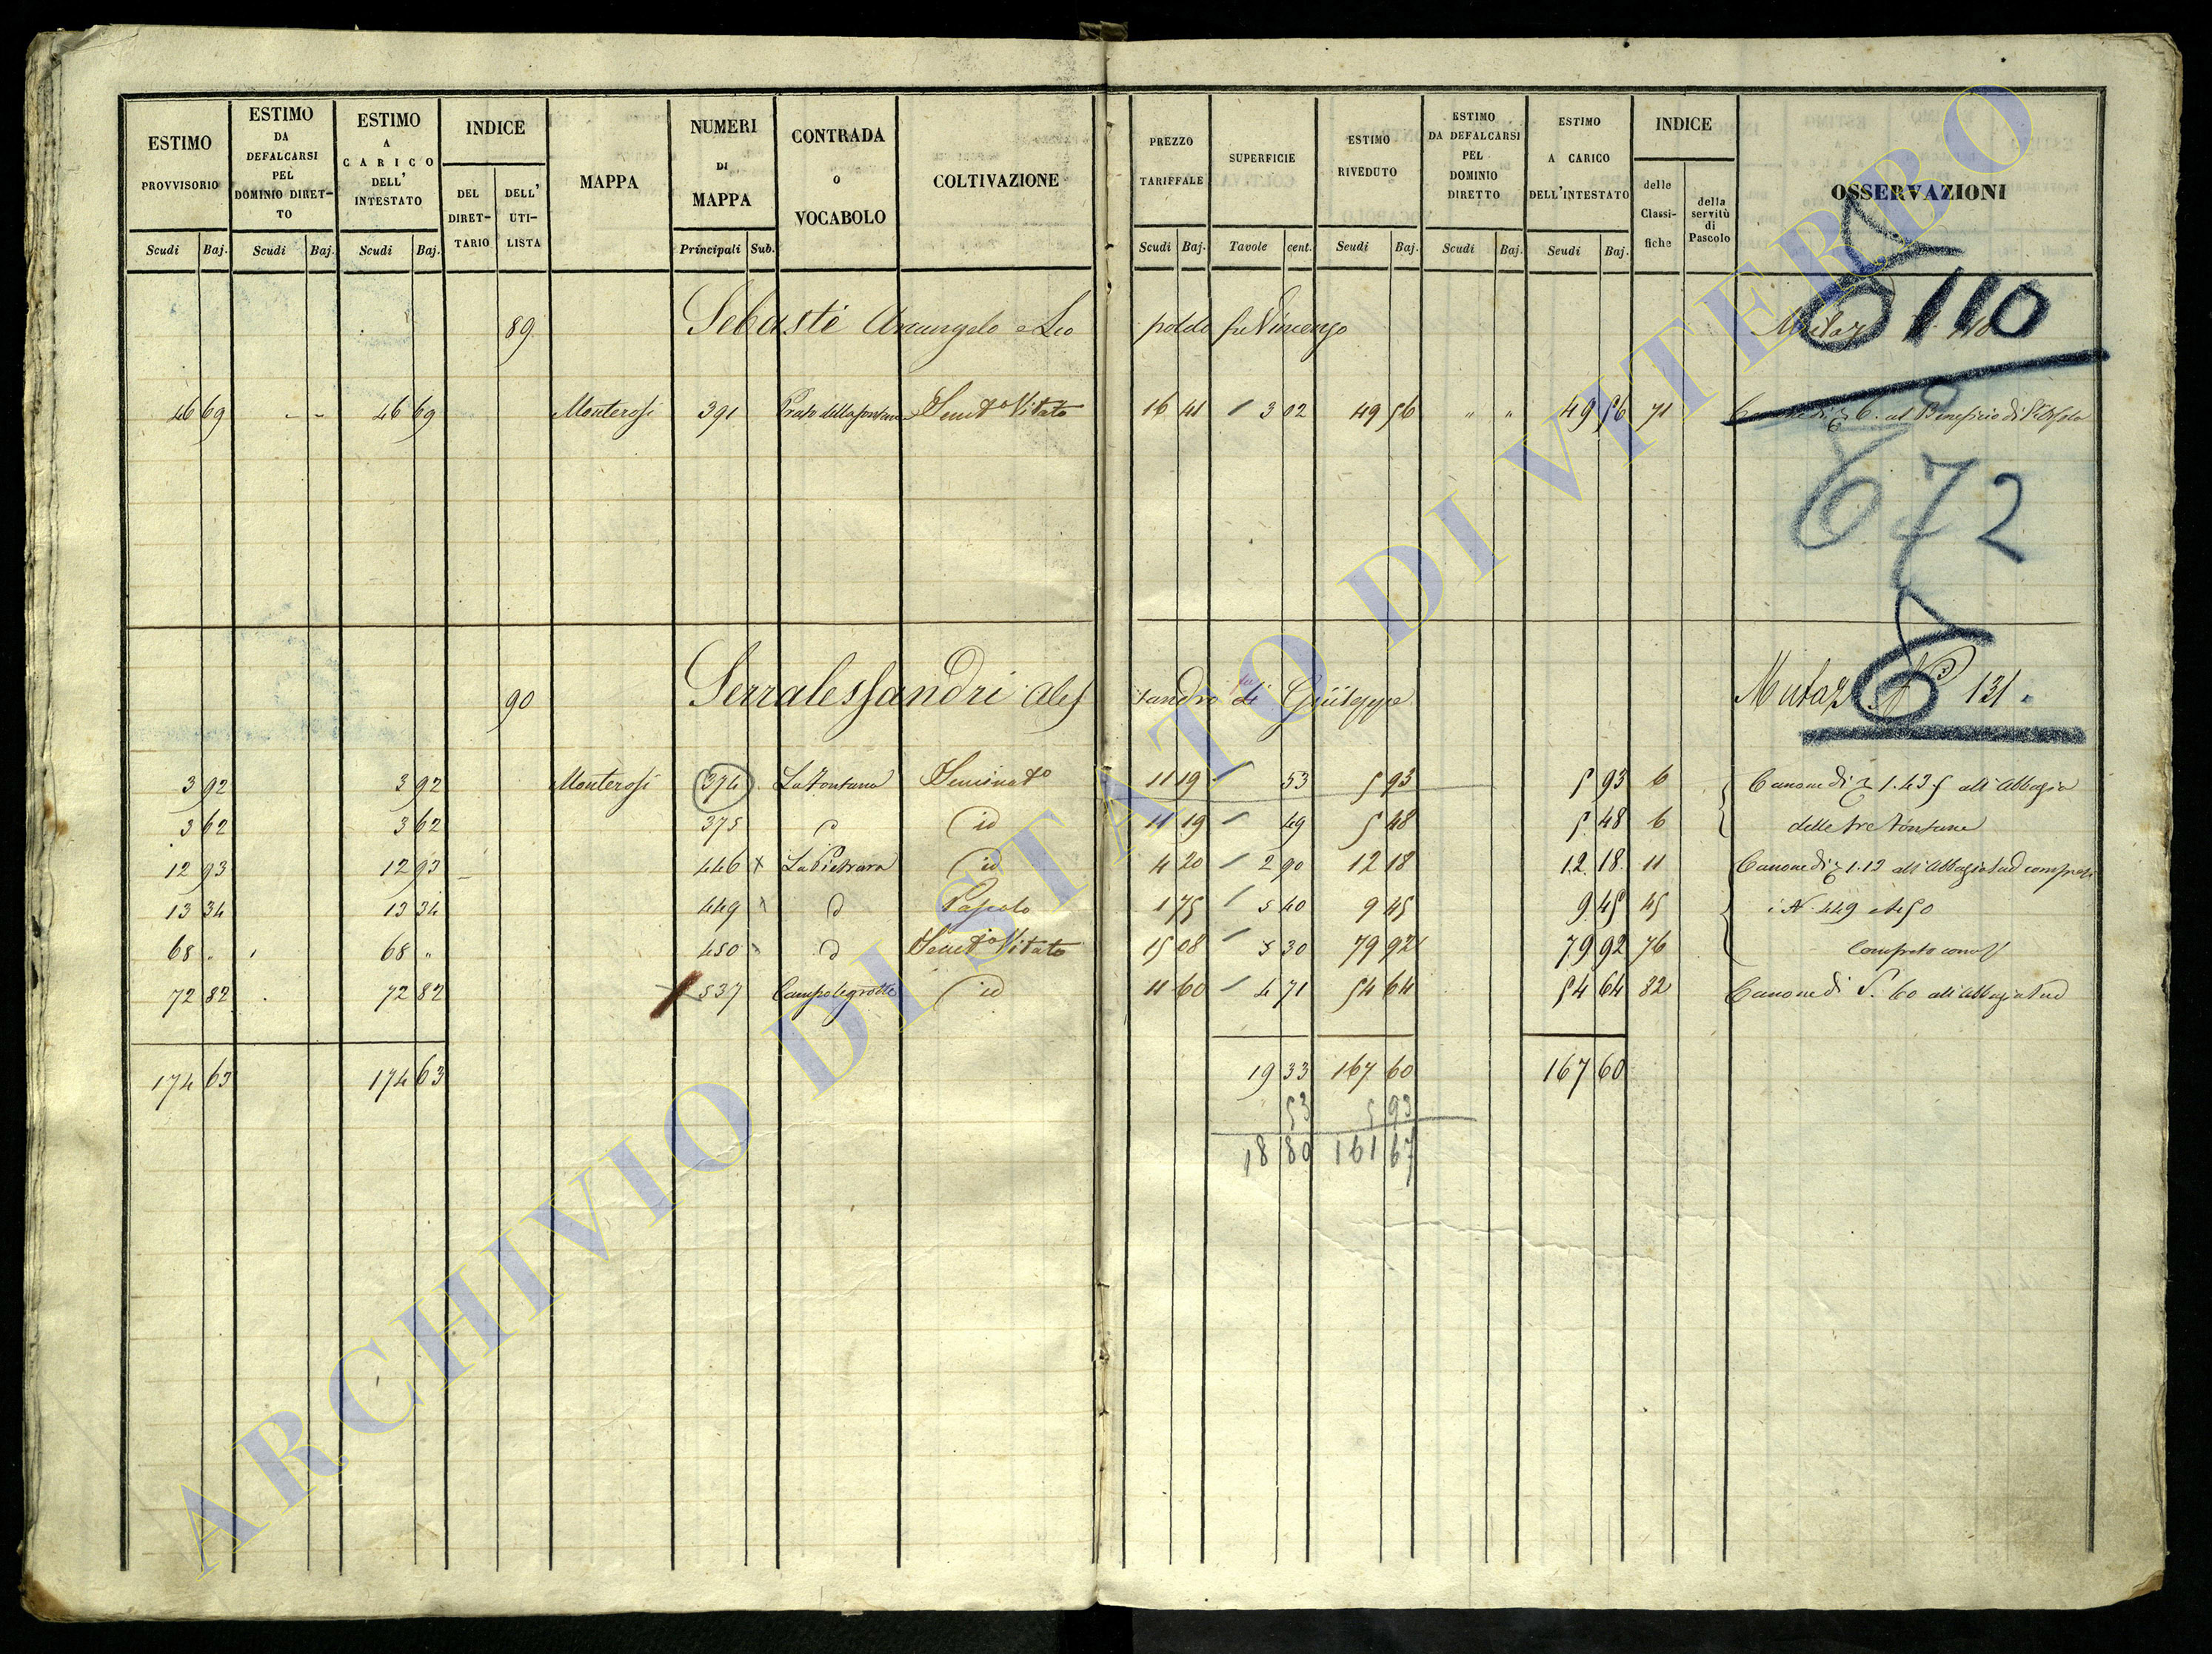 ESTIMO PROVVISORIO
ESTIMO DA DEFALCARSI PEL DOMINIO DIRET-TO
ESTIMO A CARICO DELL' INTESTATO
INDICE
DEL DIRET-TARIO
DELL' UTI-LISTA
MAPPA
NUMERI DI MAPPA
CONTRADA O VOCABOLO
COLTIVAZIONE
PREZZO TARIFFALE
SUPERFICIE
ESTIMO RIVEDUTO
ESTIMO DA DEFALCARSI PEL DOMINIO DIRETTO
ESTIMO A CARICO DELL'INTESTATO
INDICE
delle Classi-fiche
della servitù di Pascolo
OSSERVAZIONI
Scudi Baj. Scudi Baj. Scudi Baj. Principali Sub. Scudi Baj. Tavole cent. Scudi Baj. Scudi Baj. Scudi Baj.
89 Sebasti Arcangelo e Leo poldo fu Vincenzo
110
46 69 - - 46 69 Monterosi 391 Prato della fontana Semto Vitato 16 41 / 3 02 49 56 " " 49 56 71 6. al Beneficio di
672
90 Serralessandri Ales sandro di Giuseppe Mutaz N 131.
6
3 92 3 92 Monterosi 374 La Fontana Seminato 11 19 / 53 5 93 5 93 6 Canone di 1.43 5 all'Abbazia
3 62 3 62 375 id 11 19 / 49 5 48 5 48 6 delle tre Fontane
12 93 12 93 446 x La Pietrara id 4 20 / 2 90 12 18 12 18 11 Canone di 1.12 all'Abbazia sud compresi
13 34 13 34 449 x Pascolo 1 75 / 5 40 9 45 9 45 45 i N 449 e 450
68 " 68 " 450 x Semto Vitato 15 08 / 5 30 79 92 79 92 76
72 82 72 82 537 Campo le grotte id 11 60 / 4 71 54 64 54 64 82 Canone di S. 60 all'Abbazia sud
174 63 174 63 19 33 167 60 167 60
53 5 93
18 80 161 67
ARCHIVIO DI STATO DI VITERBO